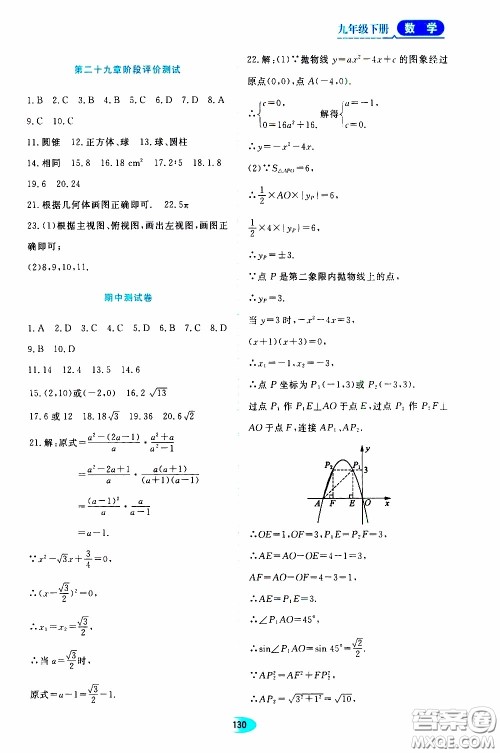 九年级下册 数学
第二十九章阶段评价测试
1.B 2.C 3.D 4.B 5.B 6.C 7.C 8.D
9.C 10.C
11.圆锥 12.正方体、球 13.球、圆柱
14.相同 15.8 16.18 cm² 17.2:5 18.1.8
19.6 20.24
21.根据几何体画图正确即可. 22.5π
23.(1)根据主视图、俯视图,画出左视图,画图正
确即可;
(2)8,9,10,11.
期中测试卷
1.A 2.D 3.D 4.B 5.C 6.C 7.A 8.D
9.B 10.C
11.14 12.4 13.3 14.8
15.(2,10)或(-2,0) 16.2√13
17.6或12 18.18√3 19.24 20.6√2
21.解:原式=(a²-(2a-1))/a · (a²+a)/(a²-1)
=(a²-2a+1)/a · a(a+1)/((a+1)(a-1))
=(a-1)²/a · a/(a-1)
=a-1.
∵x²-√3x+3/4=0,
∴(x-√3/2)²=0,
∴x₁=x₂=√3/2,
∴当a=√3/2时,
原式=a-1=√3/2-1.
22.解:(1)∵抛物线y=ax²-4x+c的图象经过
原点(0,0),点A(-4,0).
∴{c=0, 0=16a²+16, 解得{c=0, a=-1.
∴y=-x²-4x.
(2)∵S△APO=6,
∴1/2×AO×|yP|=6,
1/2×4×|yP|=6,
∴yP=±3.
∵点P是第二象限内抛物线上的点,
∴yP=3.
当y=3时,-x²-4x=3,
(x+1)(x+3)=0,
∴x₁=-1,x₂=-3.
∴点P坐标为P₁(-1,3)或P₂(-3,3).
过点P₁作P₁E⊥AO于点E,过点P₂作P₂F⊥
AO于点F,连接AP₁、AP₂.
y
P₂ P₁ 3
A F E O x
∴OE=1,OF=3,P₁E=P₂F=3,
∴AE=AO-OE=4-1=3,
AF=AO-OF=4-3=1.
∴AE=P₁E=3.
∴∠P₁AO=45°,
∴sin∠P₁AO=sin45°=√2/2.
∵AP₂²=AF²+P₂F²,
∴AP₂=√(3²+1²)=√10,
130
答案圈
MXQE.COM